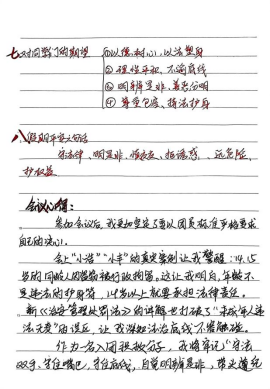 七、对同学们的期望 ①以德树心,以法塑身
② 理性平和、不逾底线
③ 明辨是非、善恶分明
④ 尊重包容、择法护身
八、假期平安大结
守法律、明是非、慎交友、拒诱惑、远危险、
护权益
会议心得:
参加会议后,我更加坚定了要以团员标准严格要求
自己的决心。
会上“小浩”“小丰”的真实案例让我警醒:14、15
岁的同龄人因 被行政拘留。这让我明白,年龄不
是违法的护身符,14岁以上就要承担法律责任。
新《治安管理处罚法》的讲解也打破了“未成年人违
法无责”的误区,让我深知法治底线不容触碰。
作为一名入团积极分子,我将牢记“守法
双手、守住嘴巴、守住底线,自觉明辨是非、带头遵纪